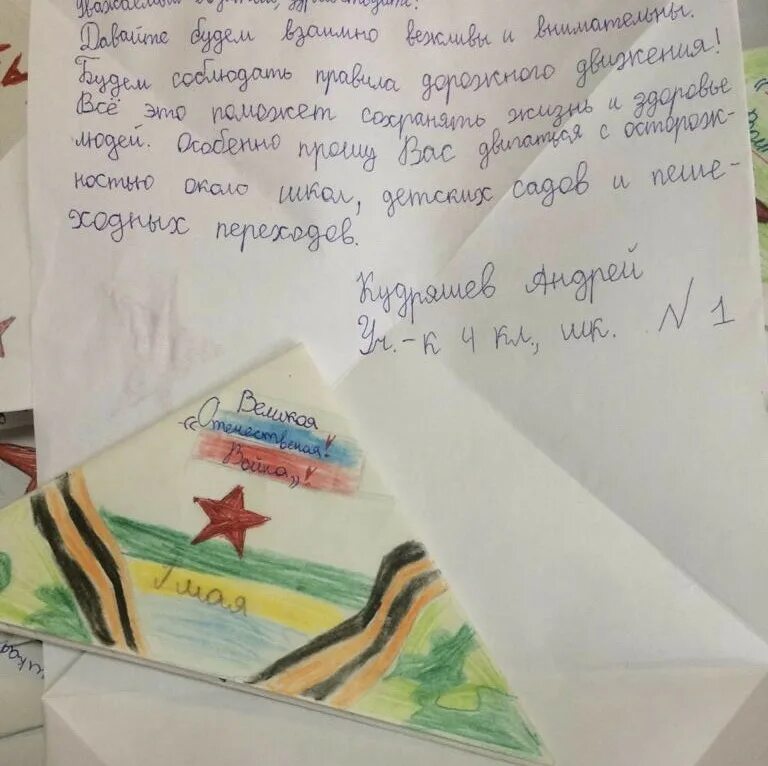 Уважаемый водитель, здравствуйте!
Давайте будем взаимно вежливы и внимательны.
Будем соблюдать правила дорожного движения!
Всё это поможет сохранять жизнь и здоровье
людей. Особенно прошу Вас двигаться с осторож-
ностью около школ, детских садов и пеше-
ходных переходов.
Кудряшев Андрей
Уч.-к 4 кл, шк. N 1
Великая
"Отечественная!
Война"!
мая